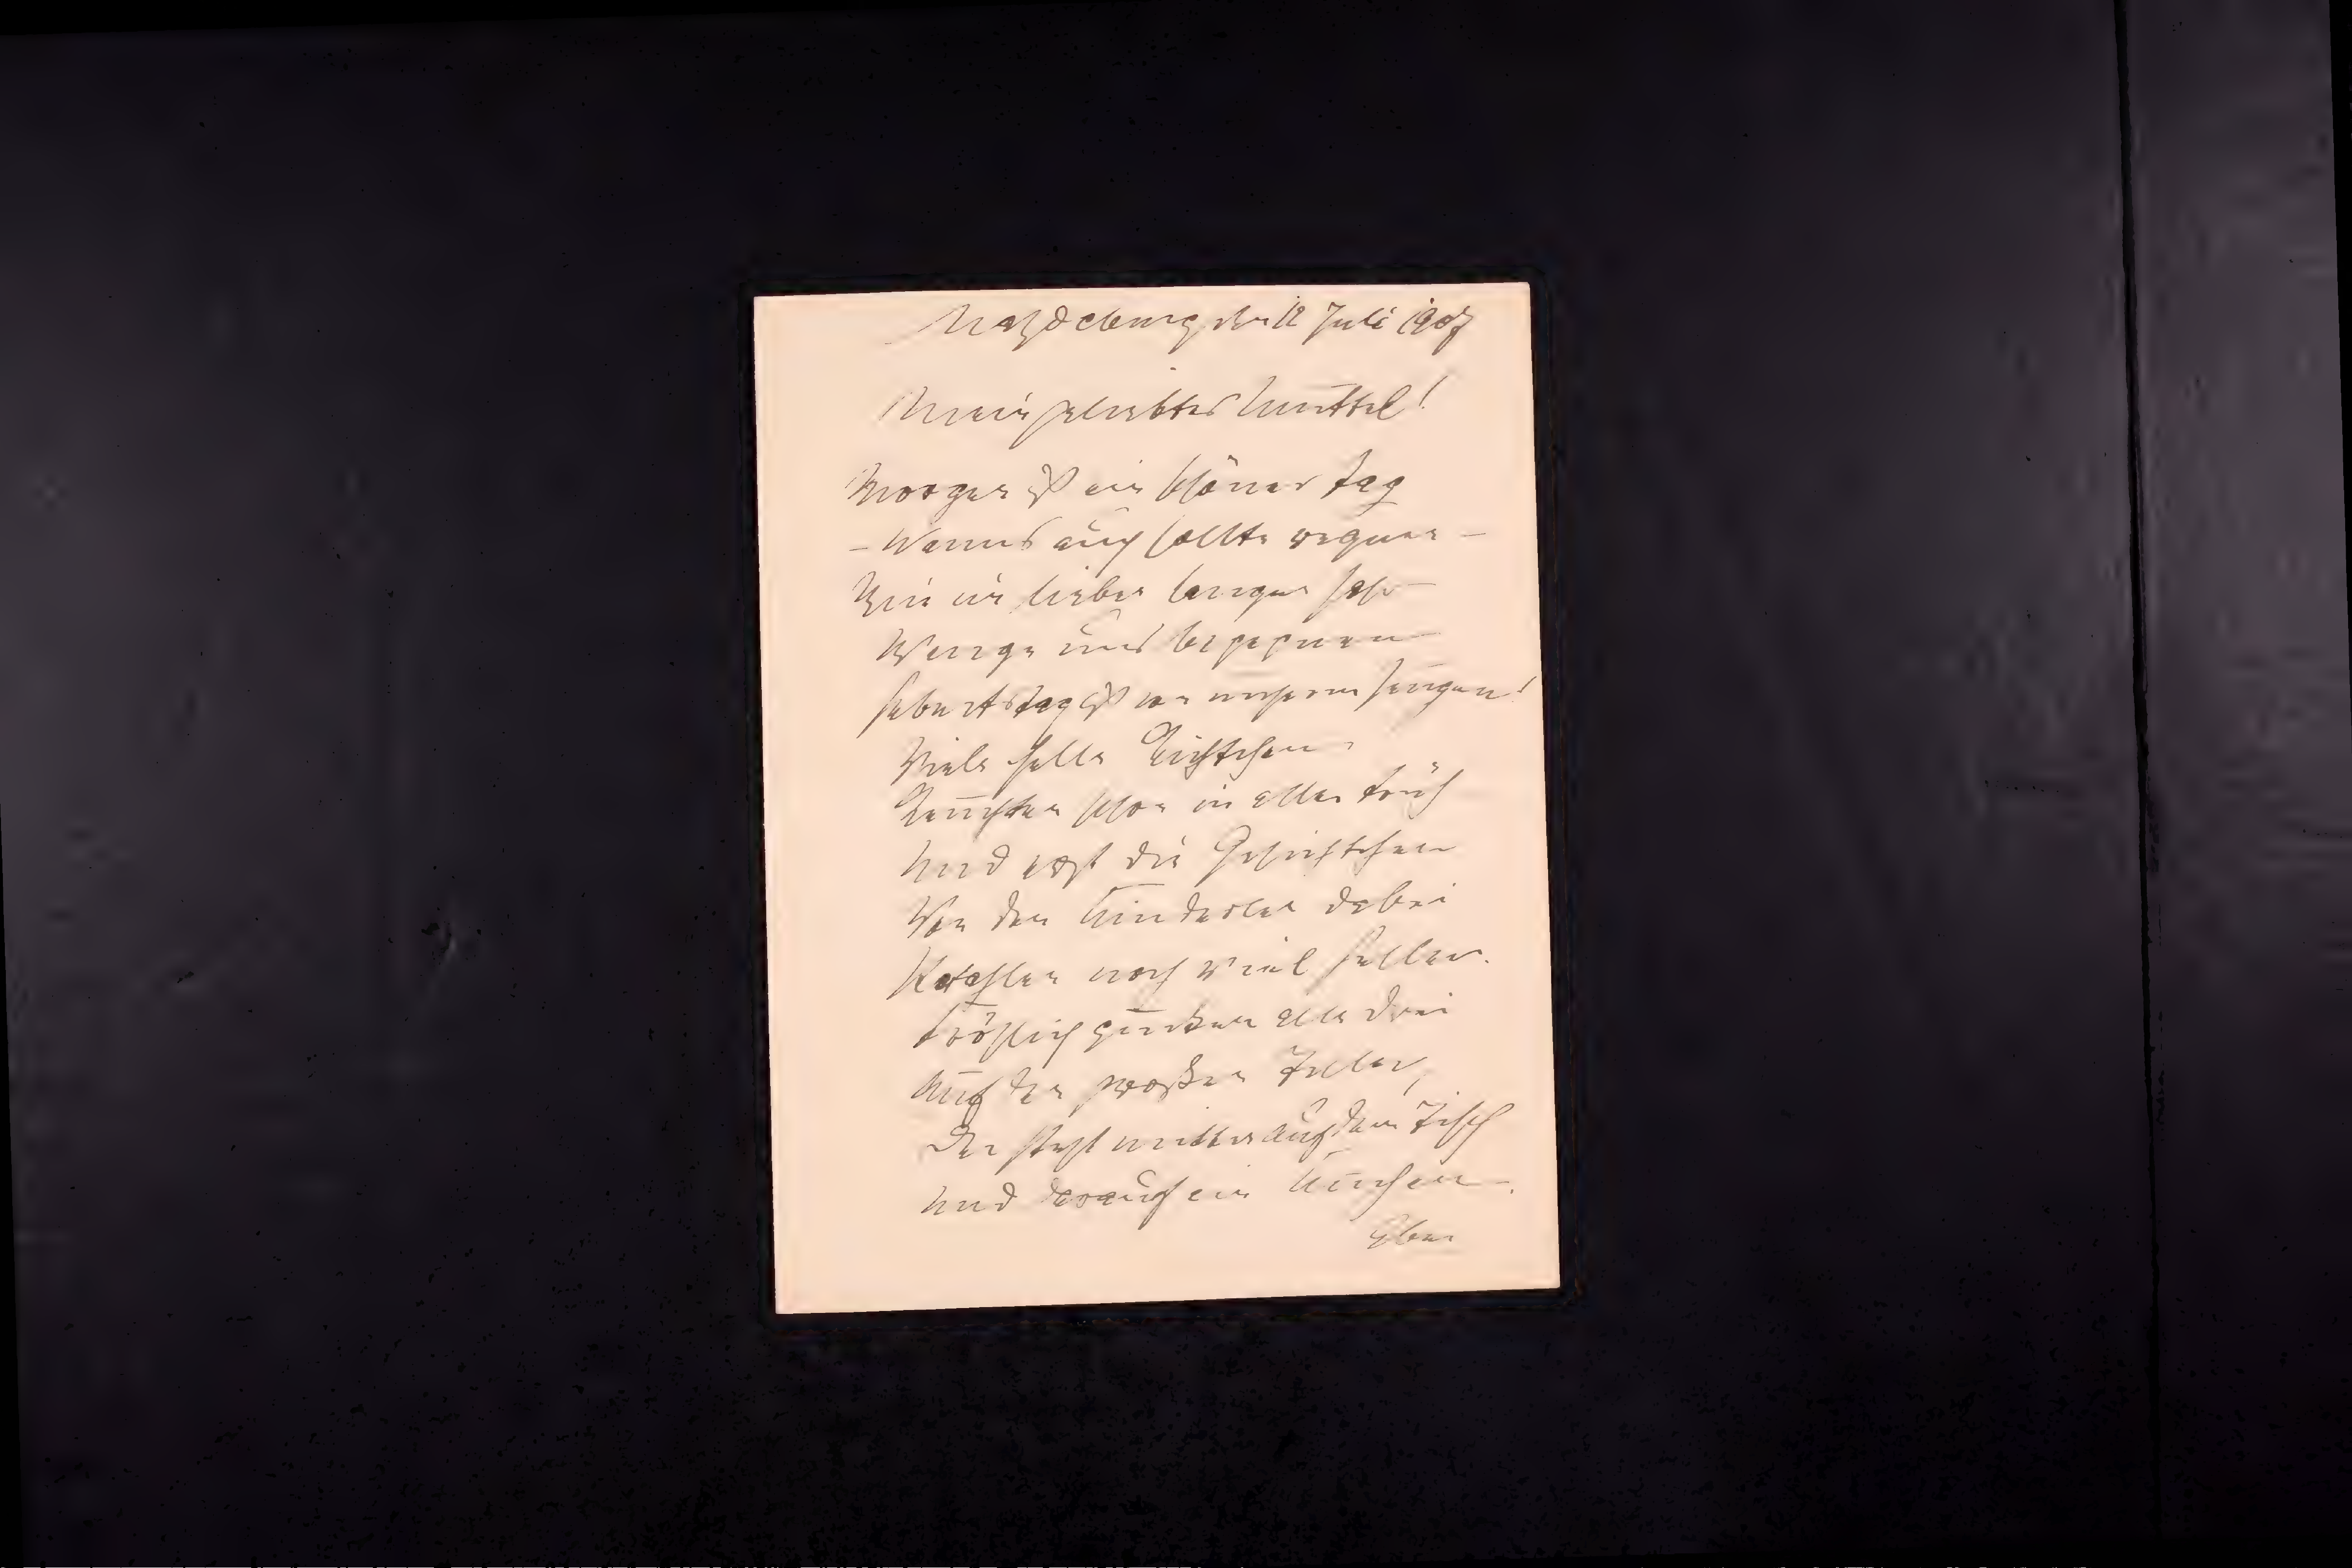 Magdeburg den 12 Juli 1907
Mein geliebtes Muttel!
Morgen ist ein schöner Tag
– Wenns auch sollte regnen –
Wie ein lieber langer Jahr
Wenge uns begegnen
Geburtstag ist von unserm Jungen!
Viele helle Lichtchen
Leuchten schon in aller Früh
Und erst die Gesichtchen
Von den Kinderlen dabei
Strahlen noch viel heller.
Fröhlich gucken alle drei
Auf den großen Teller,
Der steht mitten auf dem Tisch
Und darauf ein Kuchen.
Eben